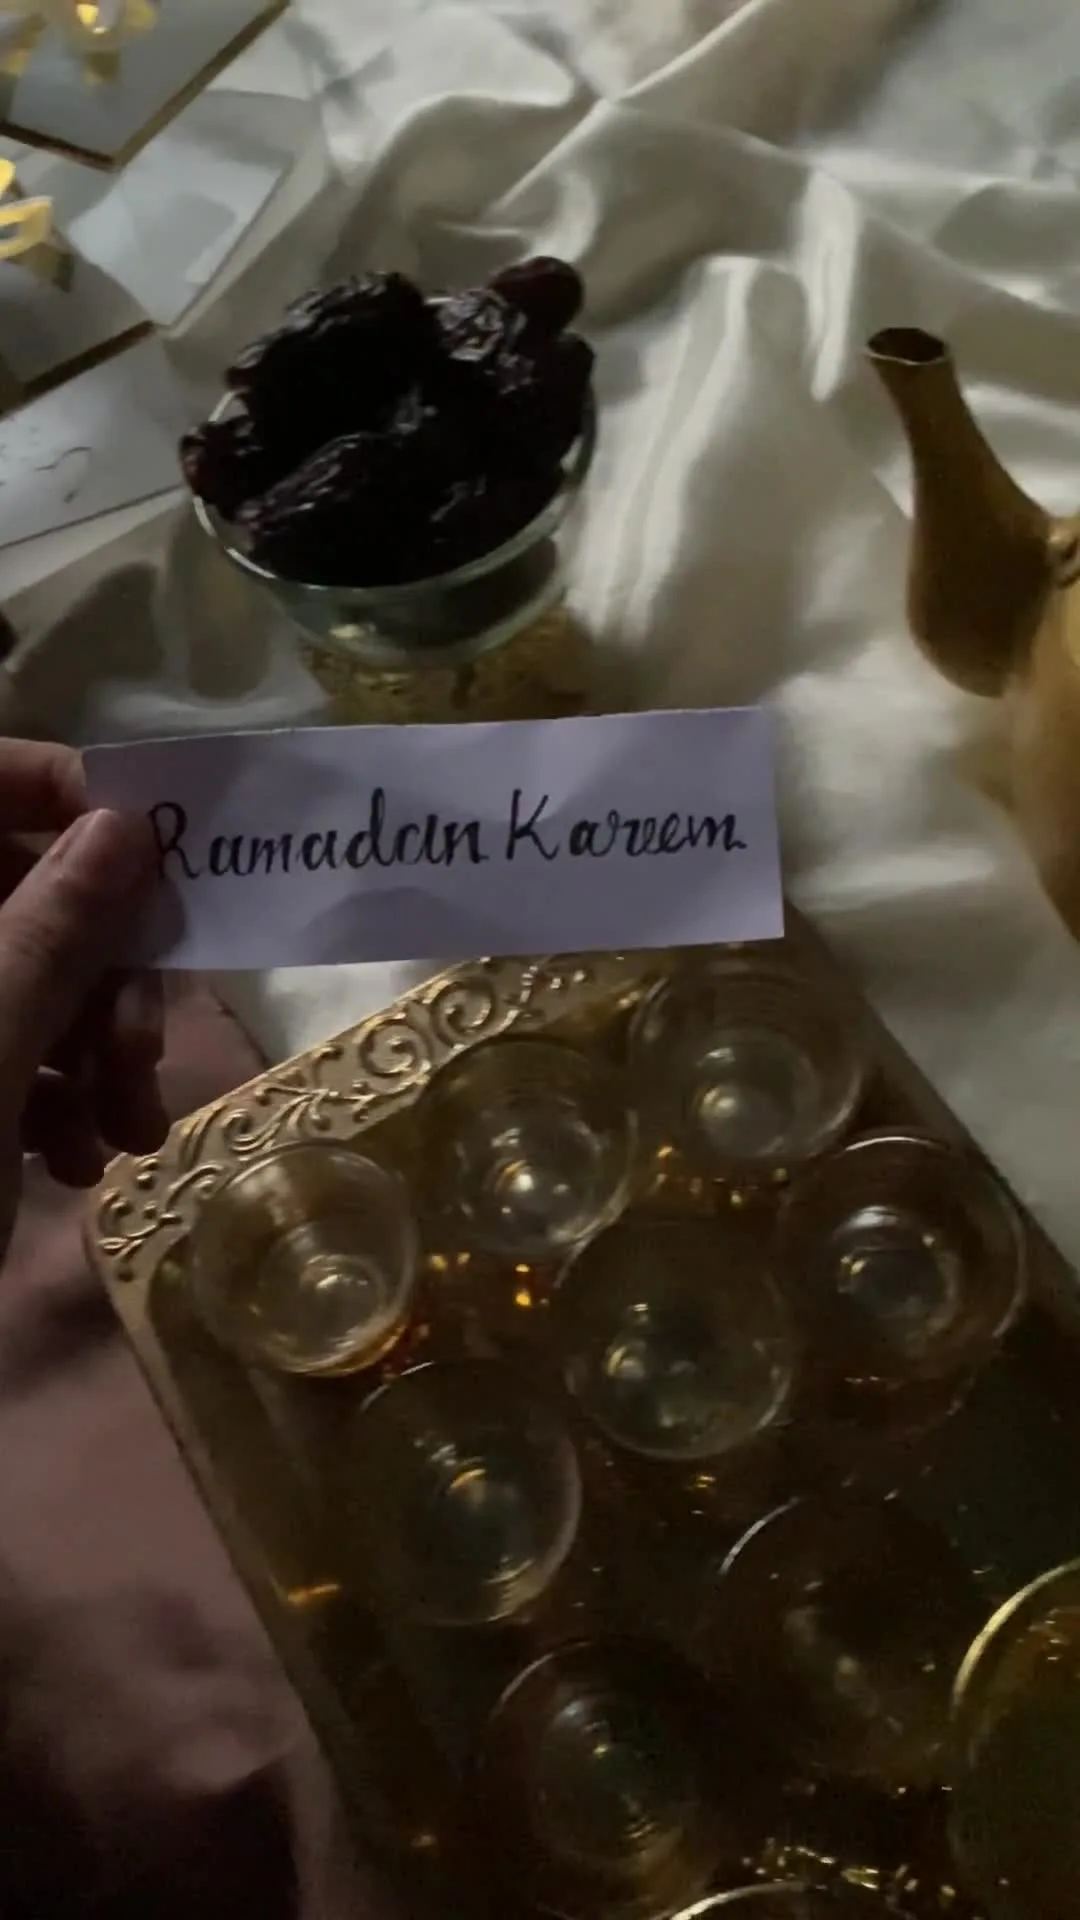 Ramadan Kareem